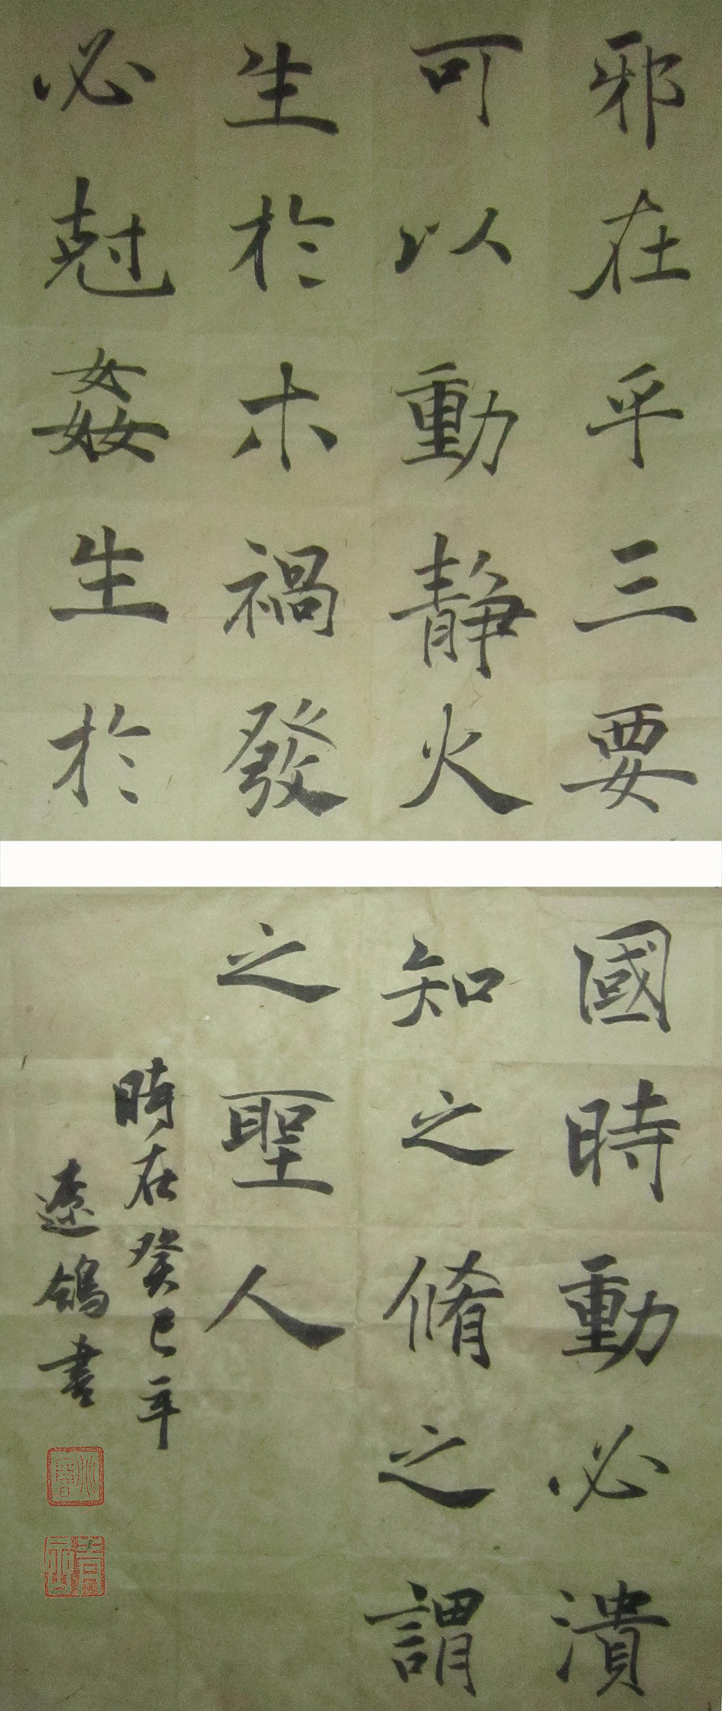 邪在乎三要
可以動静火
生於木禍發
必尅姦生於
國時動必潰
知之脩之謂
之聖人
時在癸巳年
遼鴿書